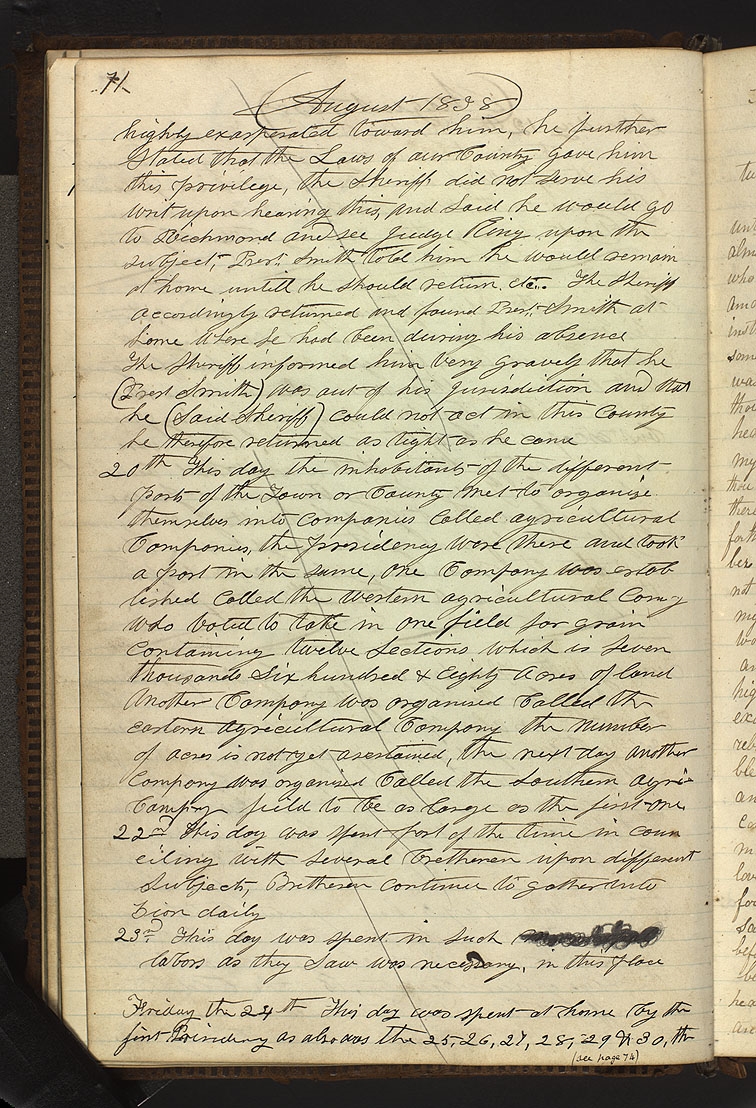 71
(August 1838)
highly exasperated toward him, he further
Stated that the Laws of our County gave him
this privilege, the Sheriff did not serve his
writ upon hearing this, and said he would go
to Richmond and see Judge King upon the
subject, Prest. Smith told him he would remain
at home untill he should return, etc.. The Sheriff
accordingly returned and found Prest. Smith at
home where he had been during his absence
The Sheriff informed him very gravely that he
(Prest Smith) was out of his jurisdiction and that
he (Said Sheriff) could not act in this County
he therefore returned as light as he came
20th This day the inhabitants of the different
parts of the Town or County met to organize
themselves into companies called agricultural
Companies, the presidency were there and took
a part in the same, One Company was estab
lished Called the western agricultural Comy
who voted to take in one field for grain
Containing twelve Sections which is Seven
thousands Six hundred & Eighty Acres of land
Another Company was organised Called the
eastern agricultural Company the number
of acres is not yet asertained, the next day another
Company was organised Called the Southern agri-
Company field to be as large as the first one
22nd This day was spent part of the time in coun
ciling with several bretheren upon different
subjects, Bretheren continue to gather into
Zion daily
23rd. This day was spent in such
labors as they saw was necessary, in this place
Friday the 24th This day was spent at home by the
first Presidency as also was the 25, 26, 27, 28, 29 & 30, th
(see page 74)